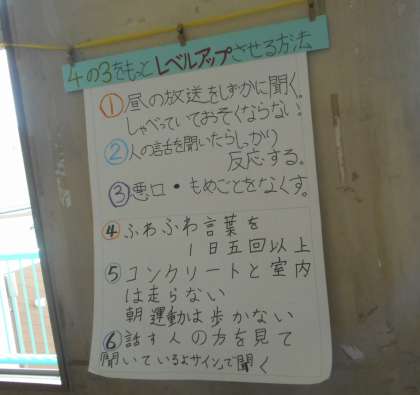 4の3をもっとレベルアップさせる方法
①昼の放送をしずかに聞く。
しゃべっていておそくならない!
②人の話を聞いたらしっかり
反応する。
③悪口・もめごとをなくす。
④ふわふわ言葉を
1日五回以上
⑤コンクリートと室内
は走らない
朝運動は歩かない
⑥話す人の方を見て
聞いているよサインで聞く